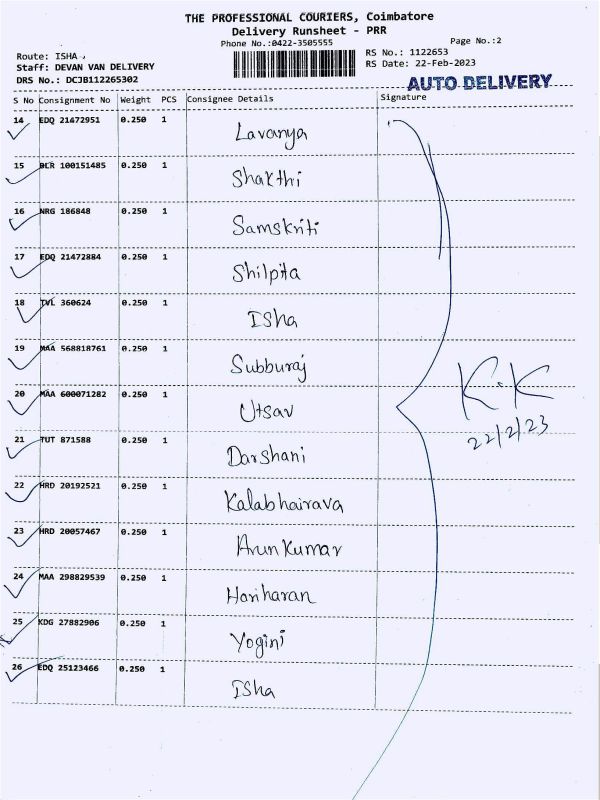 THE PROFESSIONAL COURIERS, Coimbatore
Delivery Runsheet - PRR
Phone No.:0422-3505555
Page No.:2
Route: ISHA
RS No.: 1122653
Staff: DEVAN VAN DELIVERY
RS Date: 22-Feb-2023
DRS No.: DCJB112265302
AUTO DELIVERY
S No Consignment No Weight PCS Consignee Details Signature
14 EDQ 21472951 0.250 1 Lavanya
15 BLR 100151485 0.250 1 Shakthi
16 NRG 186848 0.250 1 Samskriti
17 EDQ 21472884 0.250 1 Shilpita
18 TVL 360624 0.250 1 Isha
19 MAA 568818761 0.250 1 Subburaj
20 MAA 600071282 0.250 1 Utsav
K.K
22/2/23
21 TUT 871588 0.250 1 Darshani
22 HRD 20192521 0.250 1 Kalabhairava
23 HRD 20057467 0.250 1 Arun Kumar
24 MAA 298829539 0.250 1 Hariharan
25 KDG 27882906 0.250 1 Yogini
26 EDQ 25123466 0.250 1 Isha